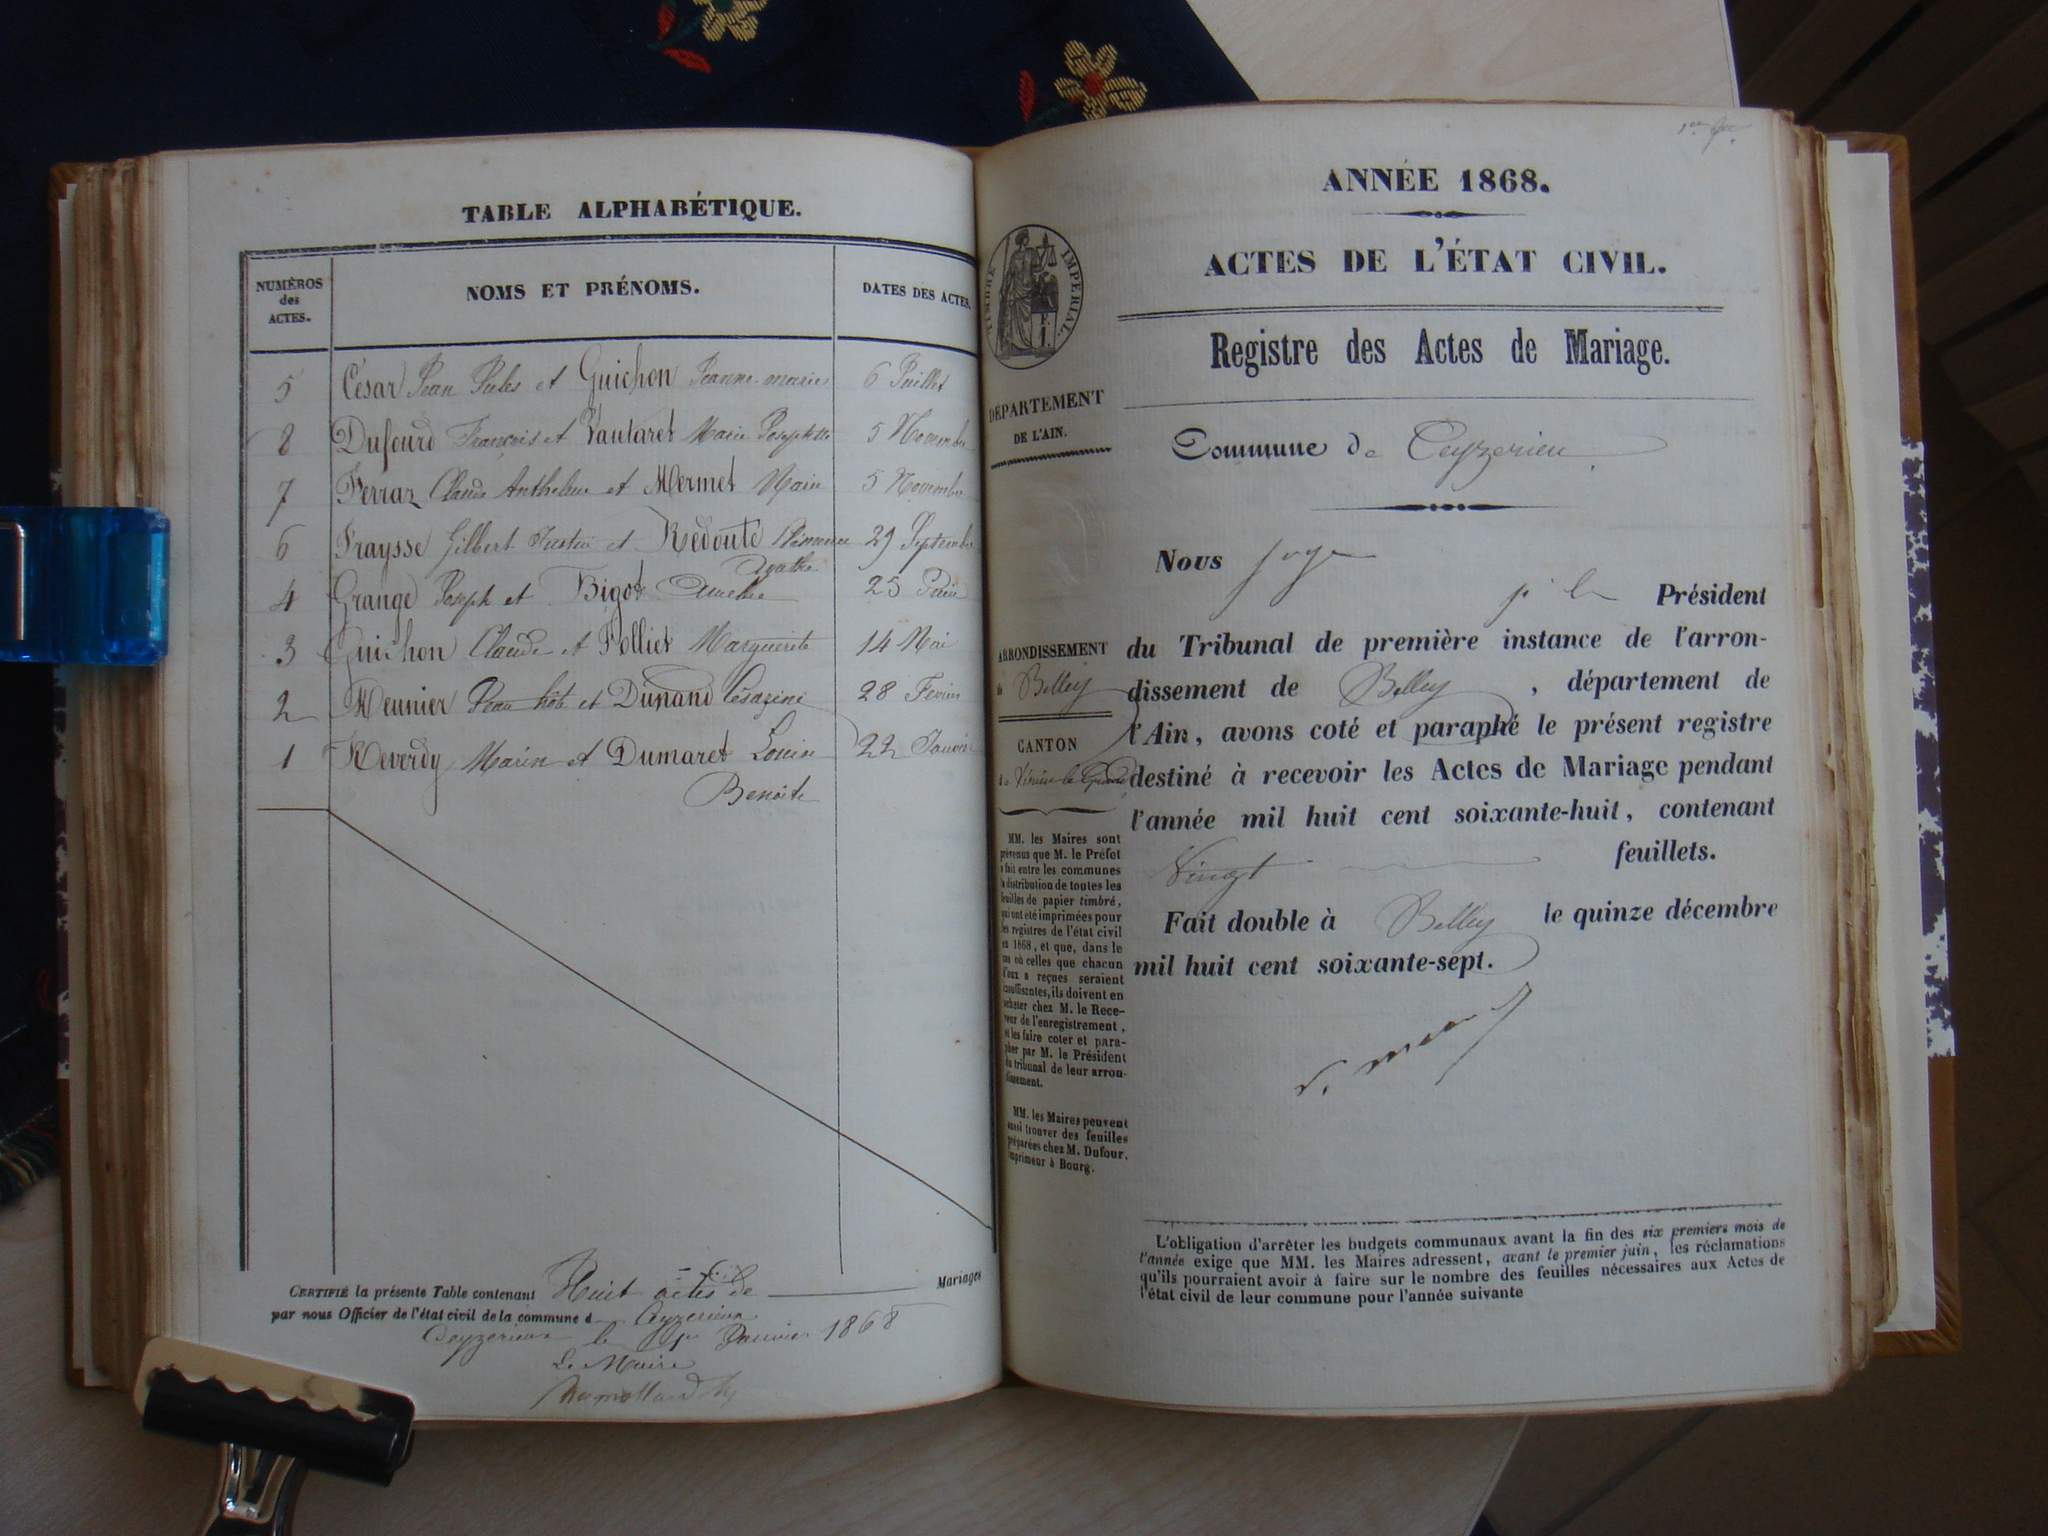 TABLE ALPHABÉTIQUE.
NUMÉROS des ACTES.
NOMS ET PRÉNOMS.
DATES DES ACTES.
5 César Jean Jules et Guichon Jeanne-marie 6 Juillet
8 Dufourd François et Vautaret Marie Josephte 5 Novembre
7 Ferraz Claude Anthelme et Mermet Marie 5 Novembre
6 Fraysse Gilbert Justin et Redouté 29 Septembre
Agathe
4 Grange Joseph et Bigot 25 Juin
3 Guichon Claude et Folliet Marguerite 14 Mai
2 Meunier Jean et Dunand Césarine 28 Fevrier
1 Reverdy Marin et Dumaret Louise 22 Janvier
Benoite
CERTIFIÉ la présente Table contenant Huit actes de Mariages
par nous Officier de l'état civil de la commune d Ceyzerieu
Ceyzerieu le 1er Janvier 1868
Le Maire
ANNÉE 1868.
ACTES DE L'ÉTAT CIVIL.
Registre des Actes de Mariage.
TIMBRE IMPÉRIAL.
DÉPARTEMENT
DE L'AIN.
Commune de Ceyzerieu
Nous juge
Président
du Tribunal de première instance de l'arron-
dissement de Belley, département de
l'Ain, avons coté et paraphé le présent registre
destiné à recevoir les Actes de Mariage pendant
l'année mil huit cent soixante-huit, contenant
Vingt feuillets.
Fait double à Belley le quinze décembre
mil huit cent soixante-sept.
ARRONDISSEMENT
de Belley
CANTON
de Virieu le Grand
MM. les Maires sont
prévenus que M. le Préfet
a fait entre les communes
la distribution de toutes les
feuilles de papier timbré,
qui ont été imprimées pour
les registres de l'état civil
en 1868, et que, dans le
cas où celles que chacun
d'eux a reçues seraient
insuffisantes, ils doivent en
acheter chez M. le Rece-
veur de l'enregistrement,
et les faire coter et para-
pher par M. le Président
du tribunal de leur arron-
dissement.
MM. les Maires peuvent
aussi trouver des feuilles
préparées chez M. Dufour,
imprimeur à Bourg.
L'obligation d'arrêter les budgets communaux avant la fin des six premiers mois de
l'année exige que MM. les Maires adressent, avant le premier juin, les réclamations
qu'ils pourraient avoir à faire sur le nombre des feuilles nécessaires aux Actes de
l'état civil de leur commune pour l'année suivante